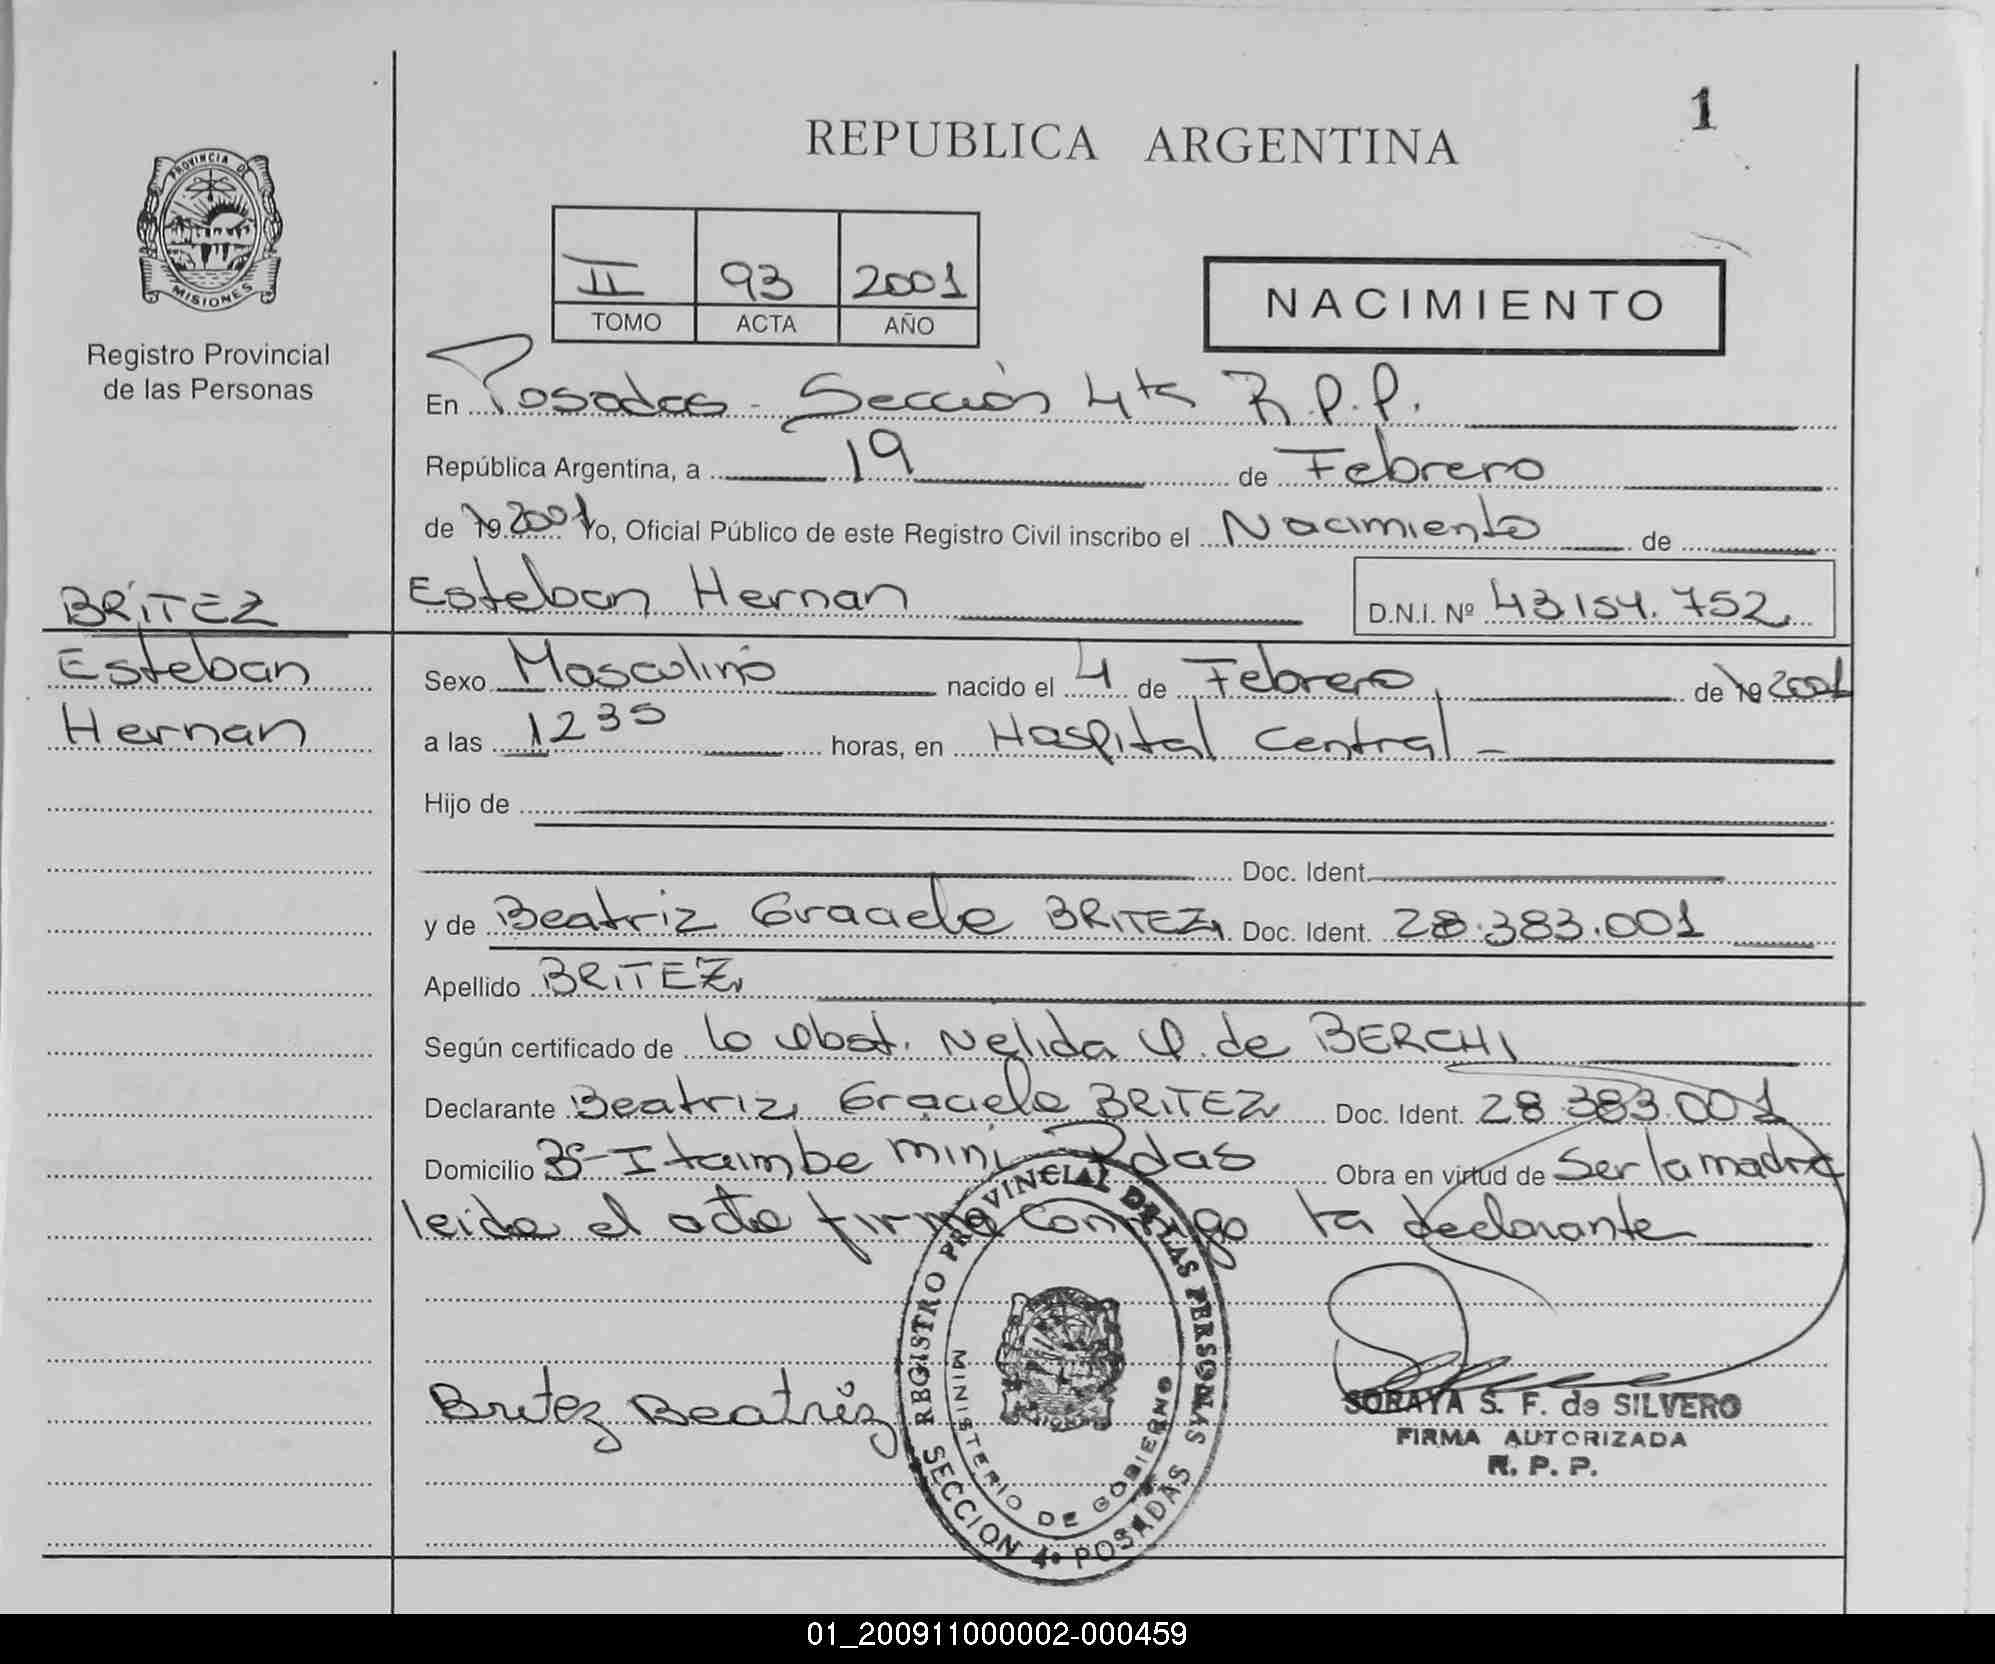 1
REPUBLICA ARGENTINA
PROVINCIA DE
MISIONES
Registro Provincial
de las Personas
II 93 2001
TOMO ACTA AÑO
NACIMIENTO
En Posadas - Sección 4ta R.P.P.
República Argentina, a 19 de Febrero
de 19 2001 Yo, Oficial Público de este Registro Civil inscribo el Nacimiento de
Esteban Hernan D.N.I. Nº 43.154.752
BRITEZ
Esteban
Hernan
Sexo Masculino nacido el 4 de Febrero de 19 2001
a las 1235 horas, en Hospital Central -
Hijo de
Doc. Ident.
y de Beatriz Graciela BRITEZ Doc. Ident. 28.383.001
Apellido BRITEZ
Según certificado de la Obst. Nelida Q. de BERCHI
Declarante Beatriz Graciela BRITEZ Doc. Ident. 28.383.001
Domicilio Bº Itaimbe mini Pdas Obra en virtud de Ser la madre
leida el acta firma conmigo la declarante
Britez Beatriz
REGISTRO PROVINCIAL DE LAS PERSONAS
MINISTERIO DE GOBIERNO
SECCION 4ª POSADAS
SORAYA S. F. de SILVERO
FIRMA AUTORIZADA
R. P. P.
01_200911000002-000459